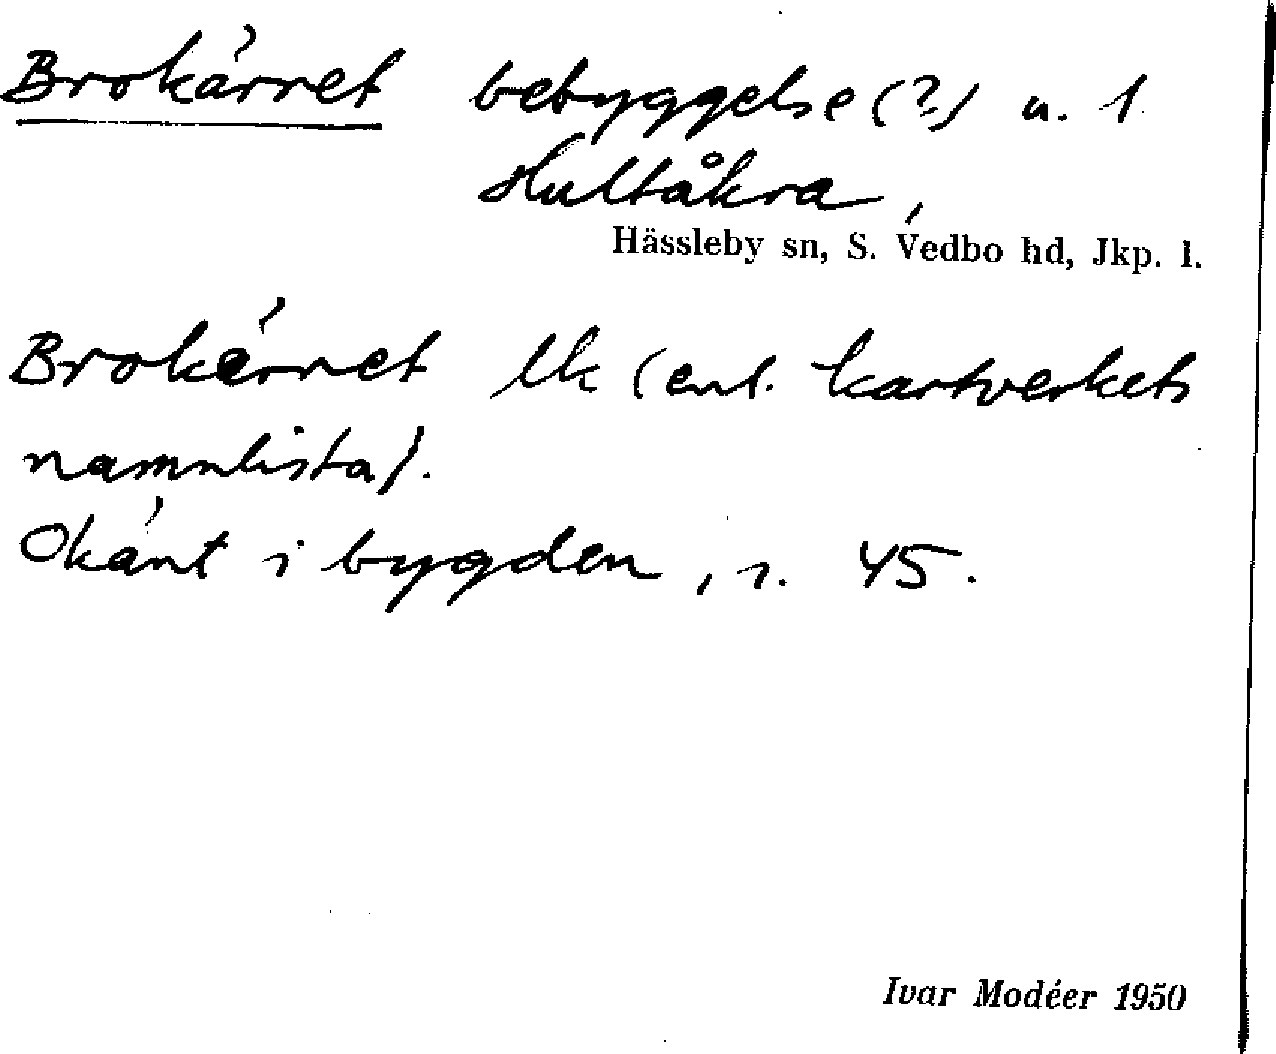 Brokärret bebyggelse (?) u. 1
Hultåkra,
Hässleby sn, S. Vedbo hd, Jkp. l.
Brokärret Ek (enl. kartverkets
namnlista).
Okänt i bygden, s. 45.
Ivar Modéer 1950